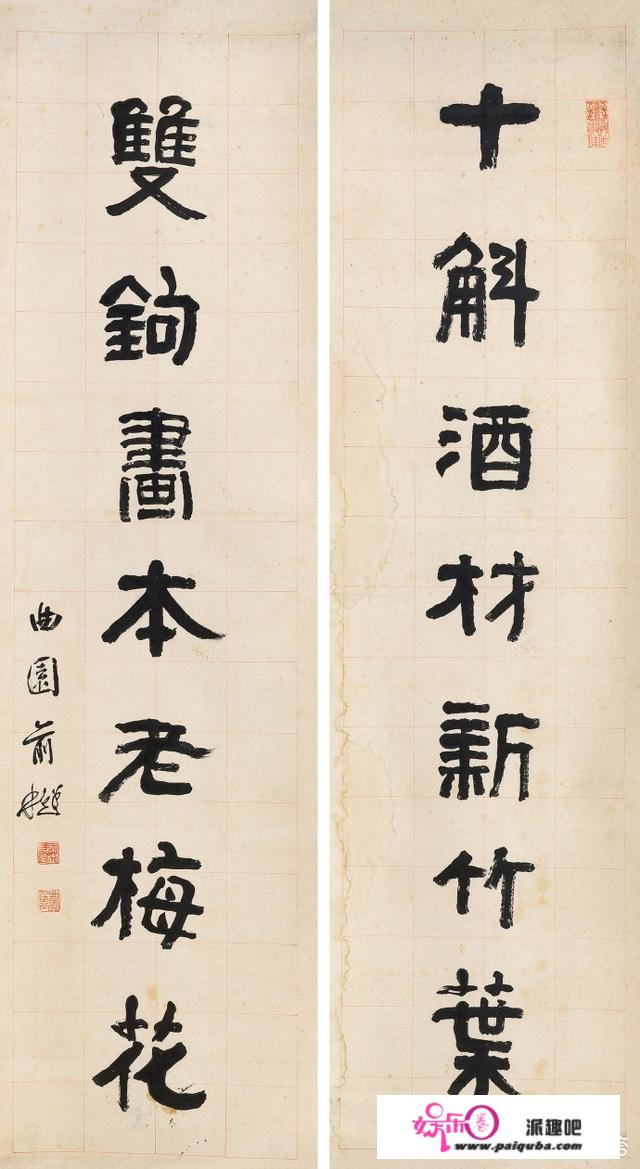 十斛酒材新竹葉
雙鉤畫本老梅花
曲園俞樾
娱乐圈
派趣吧
www.paiquba.com